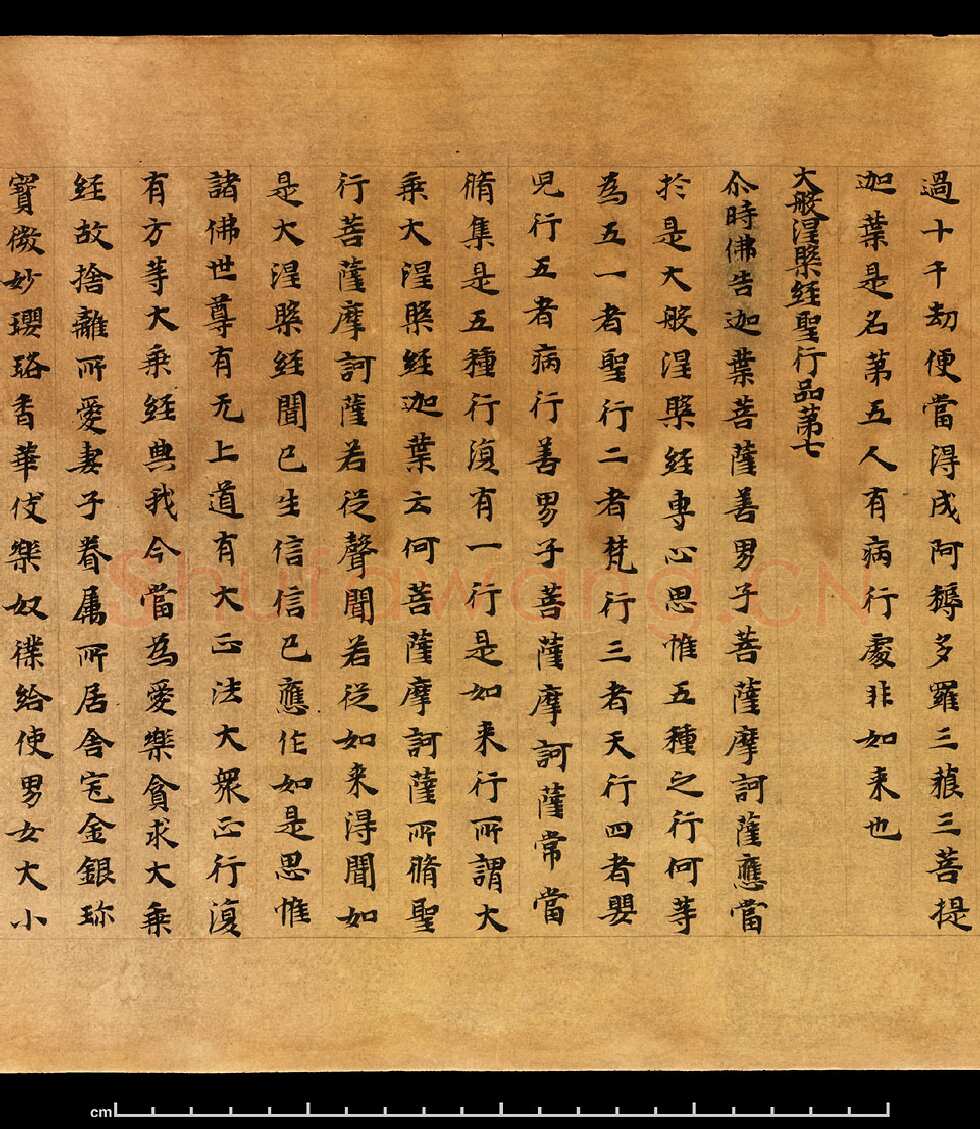 過十千劫便當得成阿耨多羅三藐三菩提
迦葉是名苐五人有病行處非如来也
大般涅槃經聖行品苐七
尒時佛告迦葉菩薩善男子菩薩摩訶薩應當
於是大般涅槃經專心思惟五種之行何等
為五一者聖行二者梵行三者天行四者嬰
兒行五者病行善男子菩薩摩訶薩常當
脩集是五種行復有一行是如来行所謂大
乘大涅槃經迦葉云何菩薩摩訶薩所脩聖
行菩薩摩訶薩若從聲聞若從如来得聞如
是大涅槃經聞已生信信已應作如是思惟
諸佛世尊有无上道有大正法大衆正行復
有方等大乘經典我今當為愛樂貪求大乘
經故捨離所愛妻子眷属所居舍宅金銀珎
寶微妙瓔珞香華伎樂奴僕給使男女大小
Shufawang.CN
cm